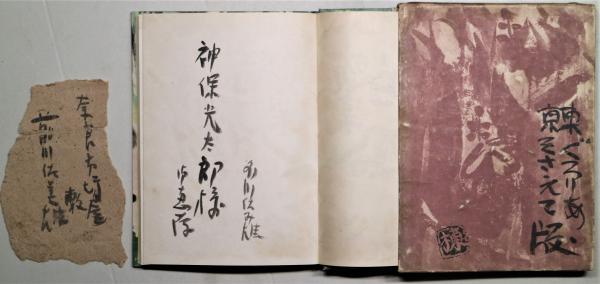 東京
ぐろりあ
そさえて版
神保光太郎様
恵存
前川佐み雄
奈良市坊屋
敷
前川佐美雄